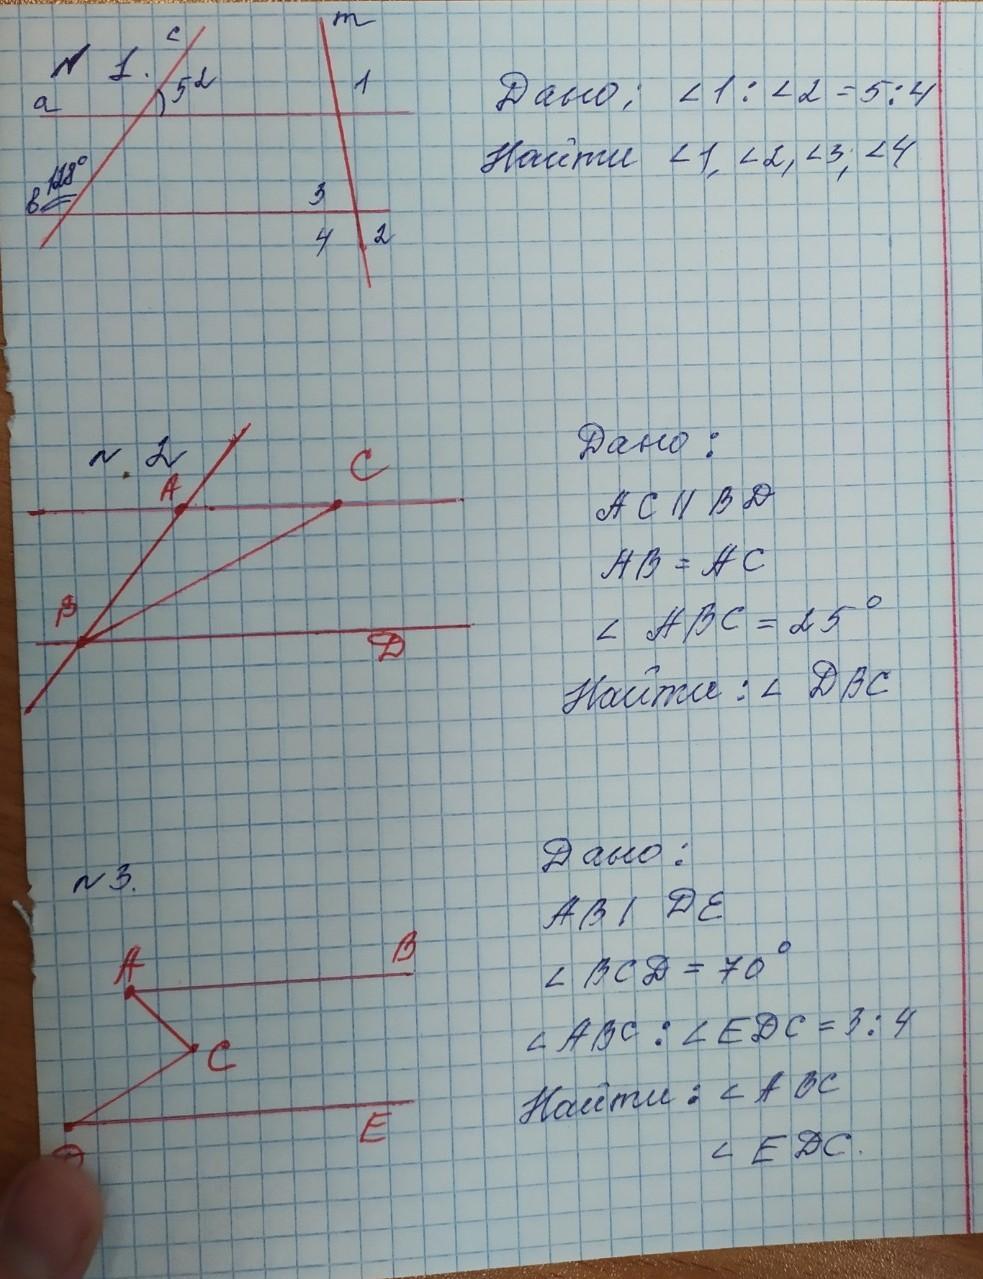 N 1.
c
m
52
1
a
128°
в
3
4
2
Дано: ∠1:∠2=5:4
Найти ∠1, ∠2, ∠3, ∠4
N. 2
A
C
B
D
Дано:
AC || BD
AB = AC
∠ ABC = 25°
Найти: ∠ DBC
N 3.
A
B
C
D
E
Дано:
AB | DE
∠ BCD = 70°
∠ ABC : ∠ EDC = 3:4
Найти: ∠ ABC
∠ EDC.